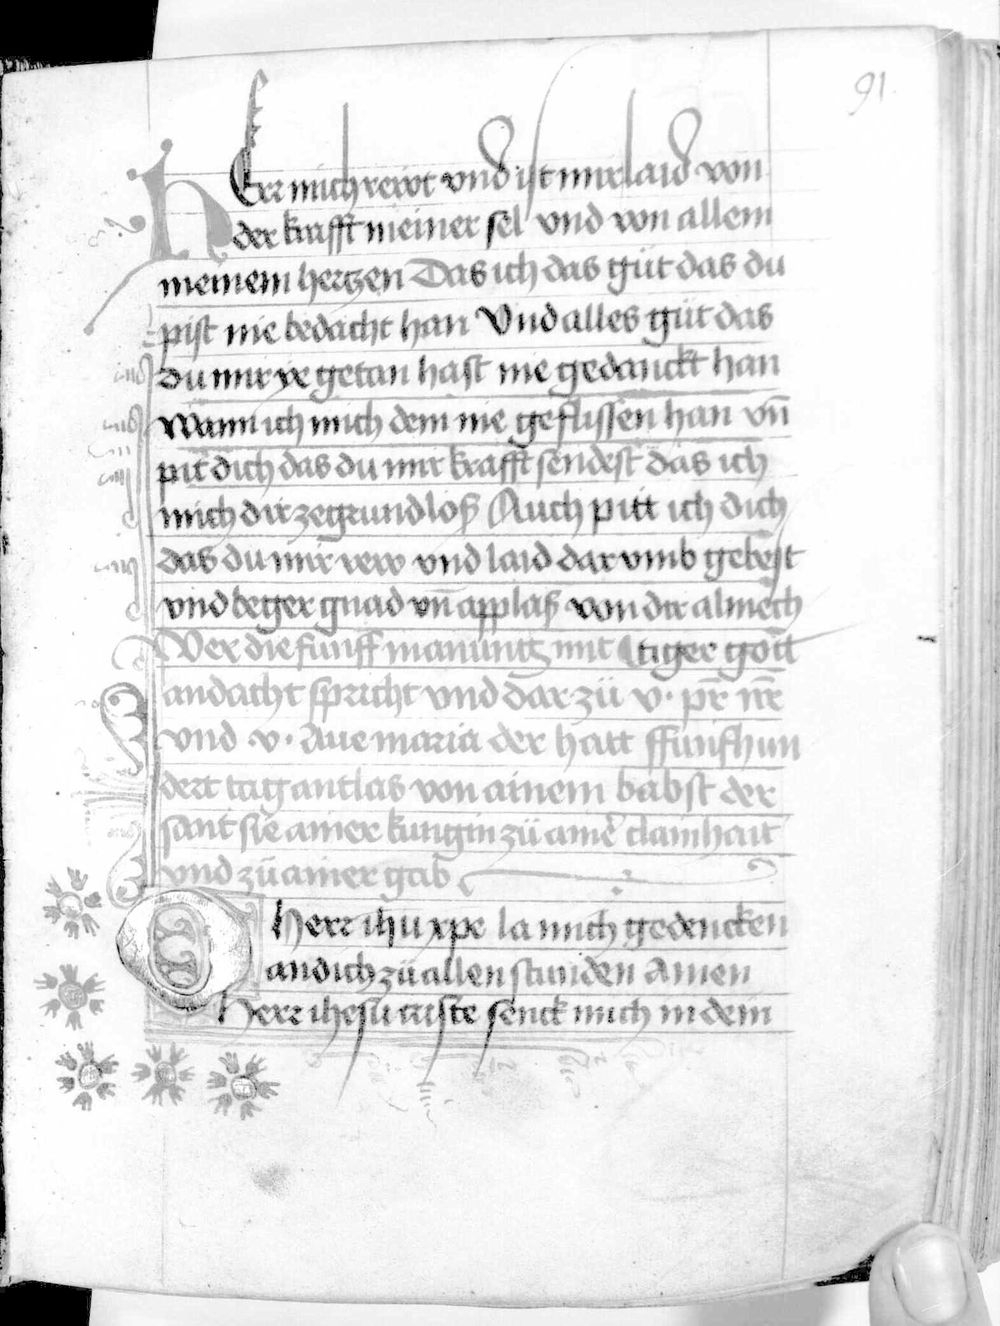 91
HErr mich rewt vnd ist mir laid von
der krafft meiner sel vnd von allem
meinem herczen Das ich das güt das du
pist nie bedacht han Vnd alles güt das
du mir ye getan hast nie gedanckt han
Wann ich mich dem nie geflissen han vn̄
pit dich das du mir krafft sendest das ich
mich dir ze grund loß Auch pitt ich dich
das du mir rew vnd laid dar vmb gebest
vnd beger gnad vn̄ applaß von dir almech
Wer die funff manung mit tiger gott
andacht spricht vnd dar zü v. pr̄ nr̄
vnd .v. Aue maria der hatt ffunfhun
dert tag antlas von ainem babst der
sant sie ainer kungin zü ainer clainhait
vnd zü ainer gab
O herr ihu xpe la mich gedencken
an dich zü allen stunden Amen
Herr ihesu criste senck mich in dein